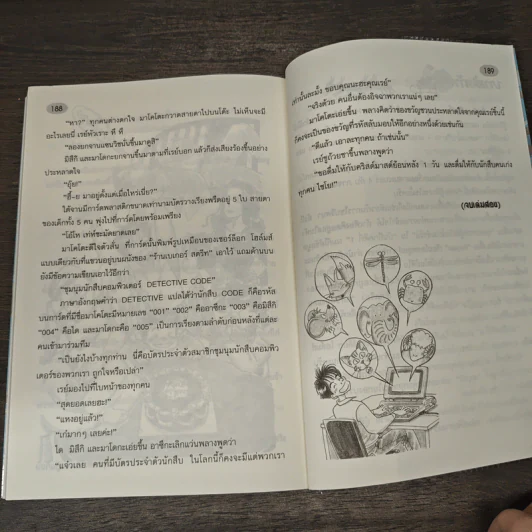 188
"หา?" ทุกคนต่างตกใจ มาโคโตะกวาดสายตาไปบนโต๊ะ ไม่เห็นจะมี
อะไรเลยนี่ เรย์หัวเราะ หึ หึ
"ลองยกจานแซนวิชขึ้นมาดูสิ"
มิสึกิ และมาโดกะยกจานขึ้นมาตามที่เรย์บอก แล้วก็ส่งเสียงร้องขึ้นอย่าง
ประหลาดใจ
"อุ๊ย!"
"สี้-ย มาอยู่ตั้งแต่เมื่อไหร่เนี่ย?"
ใต้จานมีการ์ดพลาสติกขนาดเท่านามบัตรวางเรียงพรืดอยู่ 5 ใบ สายตา
ของเด็กทั้ง 5 คน พุ่งไปที่การ์ดโดยพร้อมเพรียง
"โอ้โห เท่ห์ชะมัดยาดเลย"
มาโคโตะดีใจตัวสั่น ที่การ์ดนั้นพิมพ์รูปเหมือนของเชอร์ล็อก โฮล์มส์
แบบเดียวกับที่แขวนอยู่บนผนังของ "ร้านเบเกอร์ สตรีท" เอาไว้ แถมด้านบน
ยังมีข้อความเขียนเอาไว้อีกว่า
"ชุมนุมนักสืบคอมพิวเตอร์ DETECTIVE CODE"
ภาษาอังกฤษคำว่า DETECTIVE แปลได้ว่านักสืบ CODE ก็คือรหัส
บนการ์ดที่มีชื่อมาโคโตะมีหมายเลข "001" "002" คืออาซึกะ "003" คือมิสึกิ
"004" คือได และมาโดกะคือ "005" เป็นการเรียงตามลำดับก่อนหลังที่แต่ละ
คนเข้ามาร่วมทีม
"เป็นยังไงบ้างทุกท่าน นี่คือบัตรประจำตัวสมาชิกชุมนุมนักสืบคอมพิว
เตอร์ของพวกเรา ถูกใจหรือเปล่า"
เรย์มองไปที่ใบหน้าของทุกคน
"สุดยอดเลยฮะ!"
"แหงอยู่แล้ว!"
"เก๋มากๆ เลยค่ะ!"
ได มิสึกิ และมาโดกะเอ่ยขึ้น อาซึกะเลิกแว่นพลางพูดว่า
"แจ๋วเลย คนที่มีบัตรประจำตัวนักสืบ ในโลกนี้ก็คงจะมีแต่พวกเรา
189
เท่านั้นละมั้ง ขอบคุณนะฮะคุณเรย์"
"จริงด้วย คนอื่นต้องอิจฉาพวกเราแน่ๆ เลย"
มาโคโตะเอ่ยขึ้น พลางคิดว่าของขวัญชวนประหลาดใจจากคุณเรย์ชิ้นนี้
ก็คงจะเป็นของขวัญที่รหัสลับมอบให้อีกอย่างหนึ่งด้วยเช่นกัน
"ดีแล้ว เอาละทุกคน ถ้าเช่นนั้น"
เรย์ชูถ้วยชาขึ้นพลางพูดว่า
"ขอดื่มให้กับคริสต์มาสต์ย้อนหลัง 1 วัน และดื่มให้กับนักสืบคนเก่ง
ทุกคน ไชโย!"
(จบเล่มสอง)